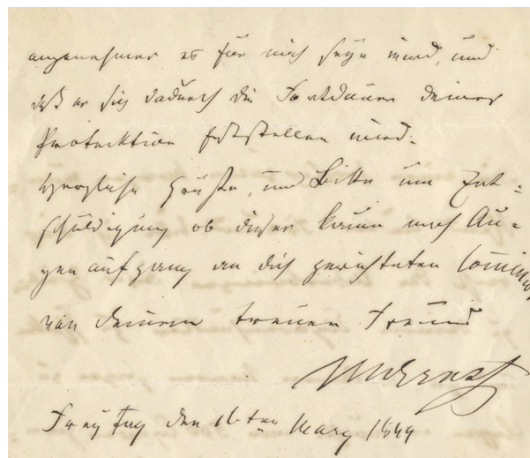 angenehmer es für mich seyn wird, und
daß er sich dadurch die Fortdauer deiner
Protecktion feststellen wird.
Herzliche Grüße, und Bitte um Ent-
schuldigung ob dieser kaum nach Au-
gen aufgang an dich gerichteten
von deinem treuen Freund
HWErnst
Freytag den 16ten März 1849